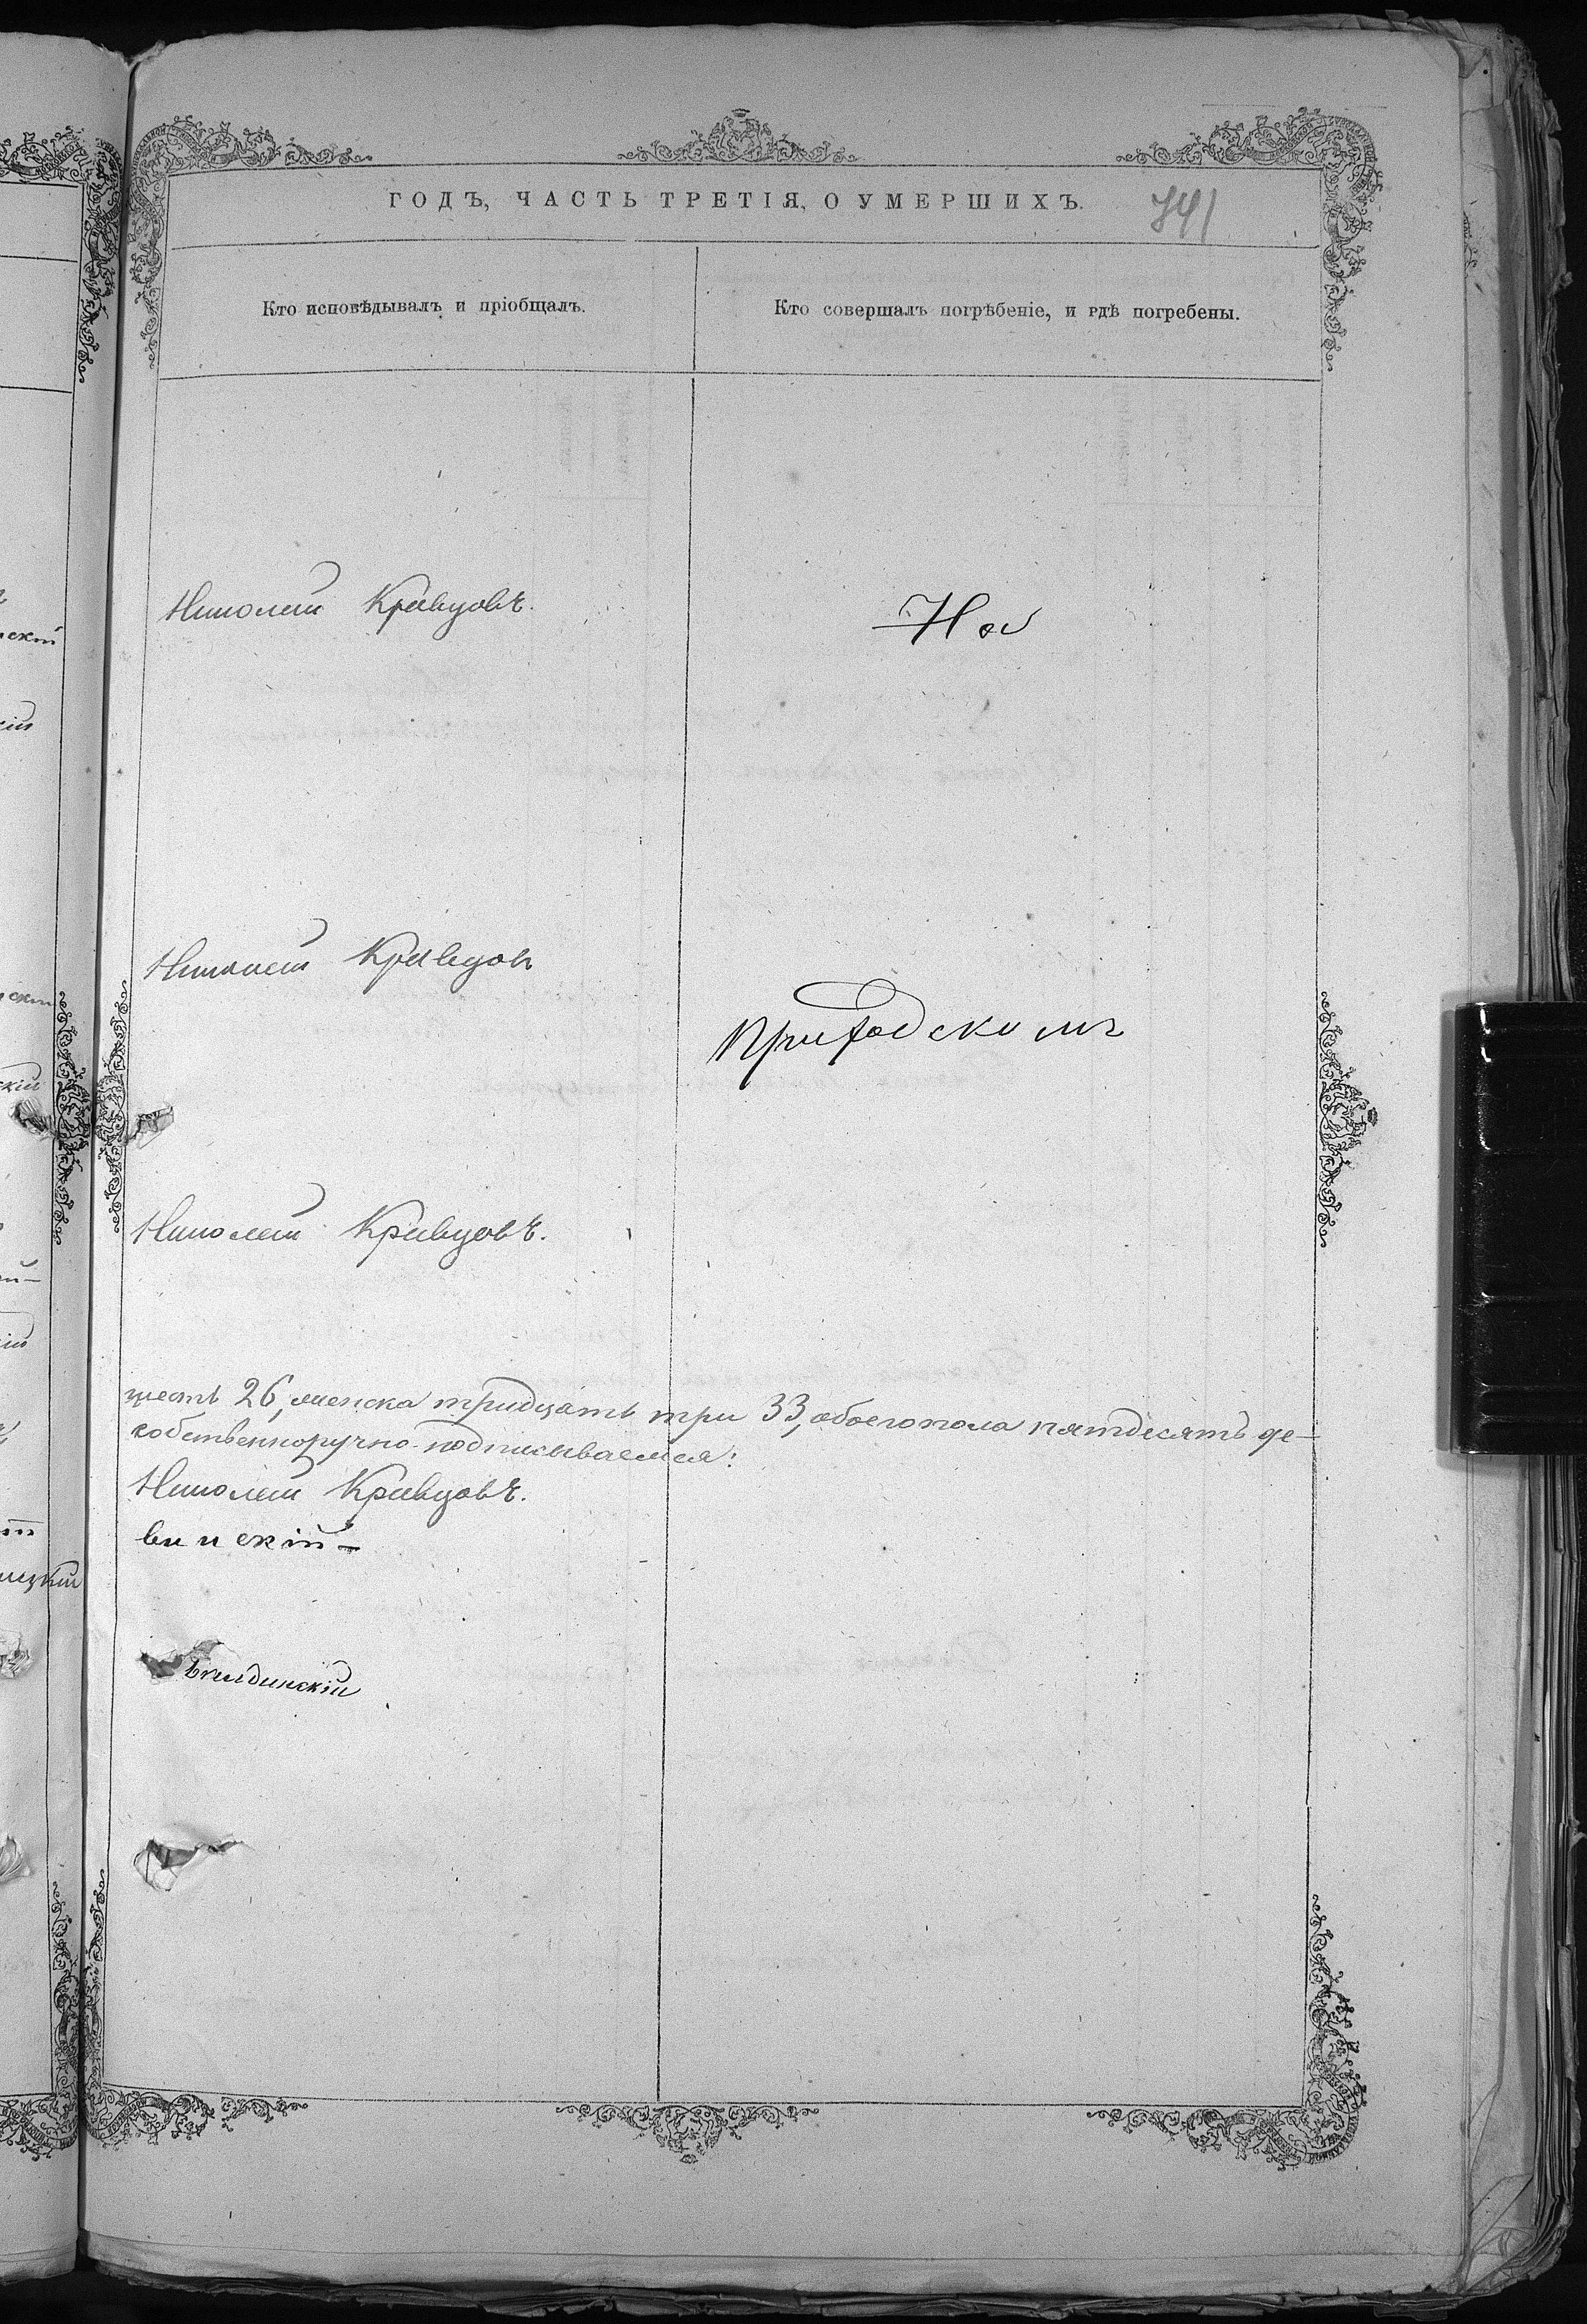 ГОДЪ, ЧАСТЬ ТРЕТІЯ, О УМЕРШИХЪ.
741
Кто исповѣдывалъ и пріобщалъ.
Кто совершалъ погрѣбеніе, и гдѣ погребены.
Николай Кривцовъ.
На
Николай Кривцовъ
Приходскомъ
Николай Кривцовъ.
шесть 26, женска тридцать три 33, обоего пола пятдесять де-
собственноручно подписываемся:
Николай Кривцовъ.
винскій –